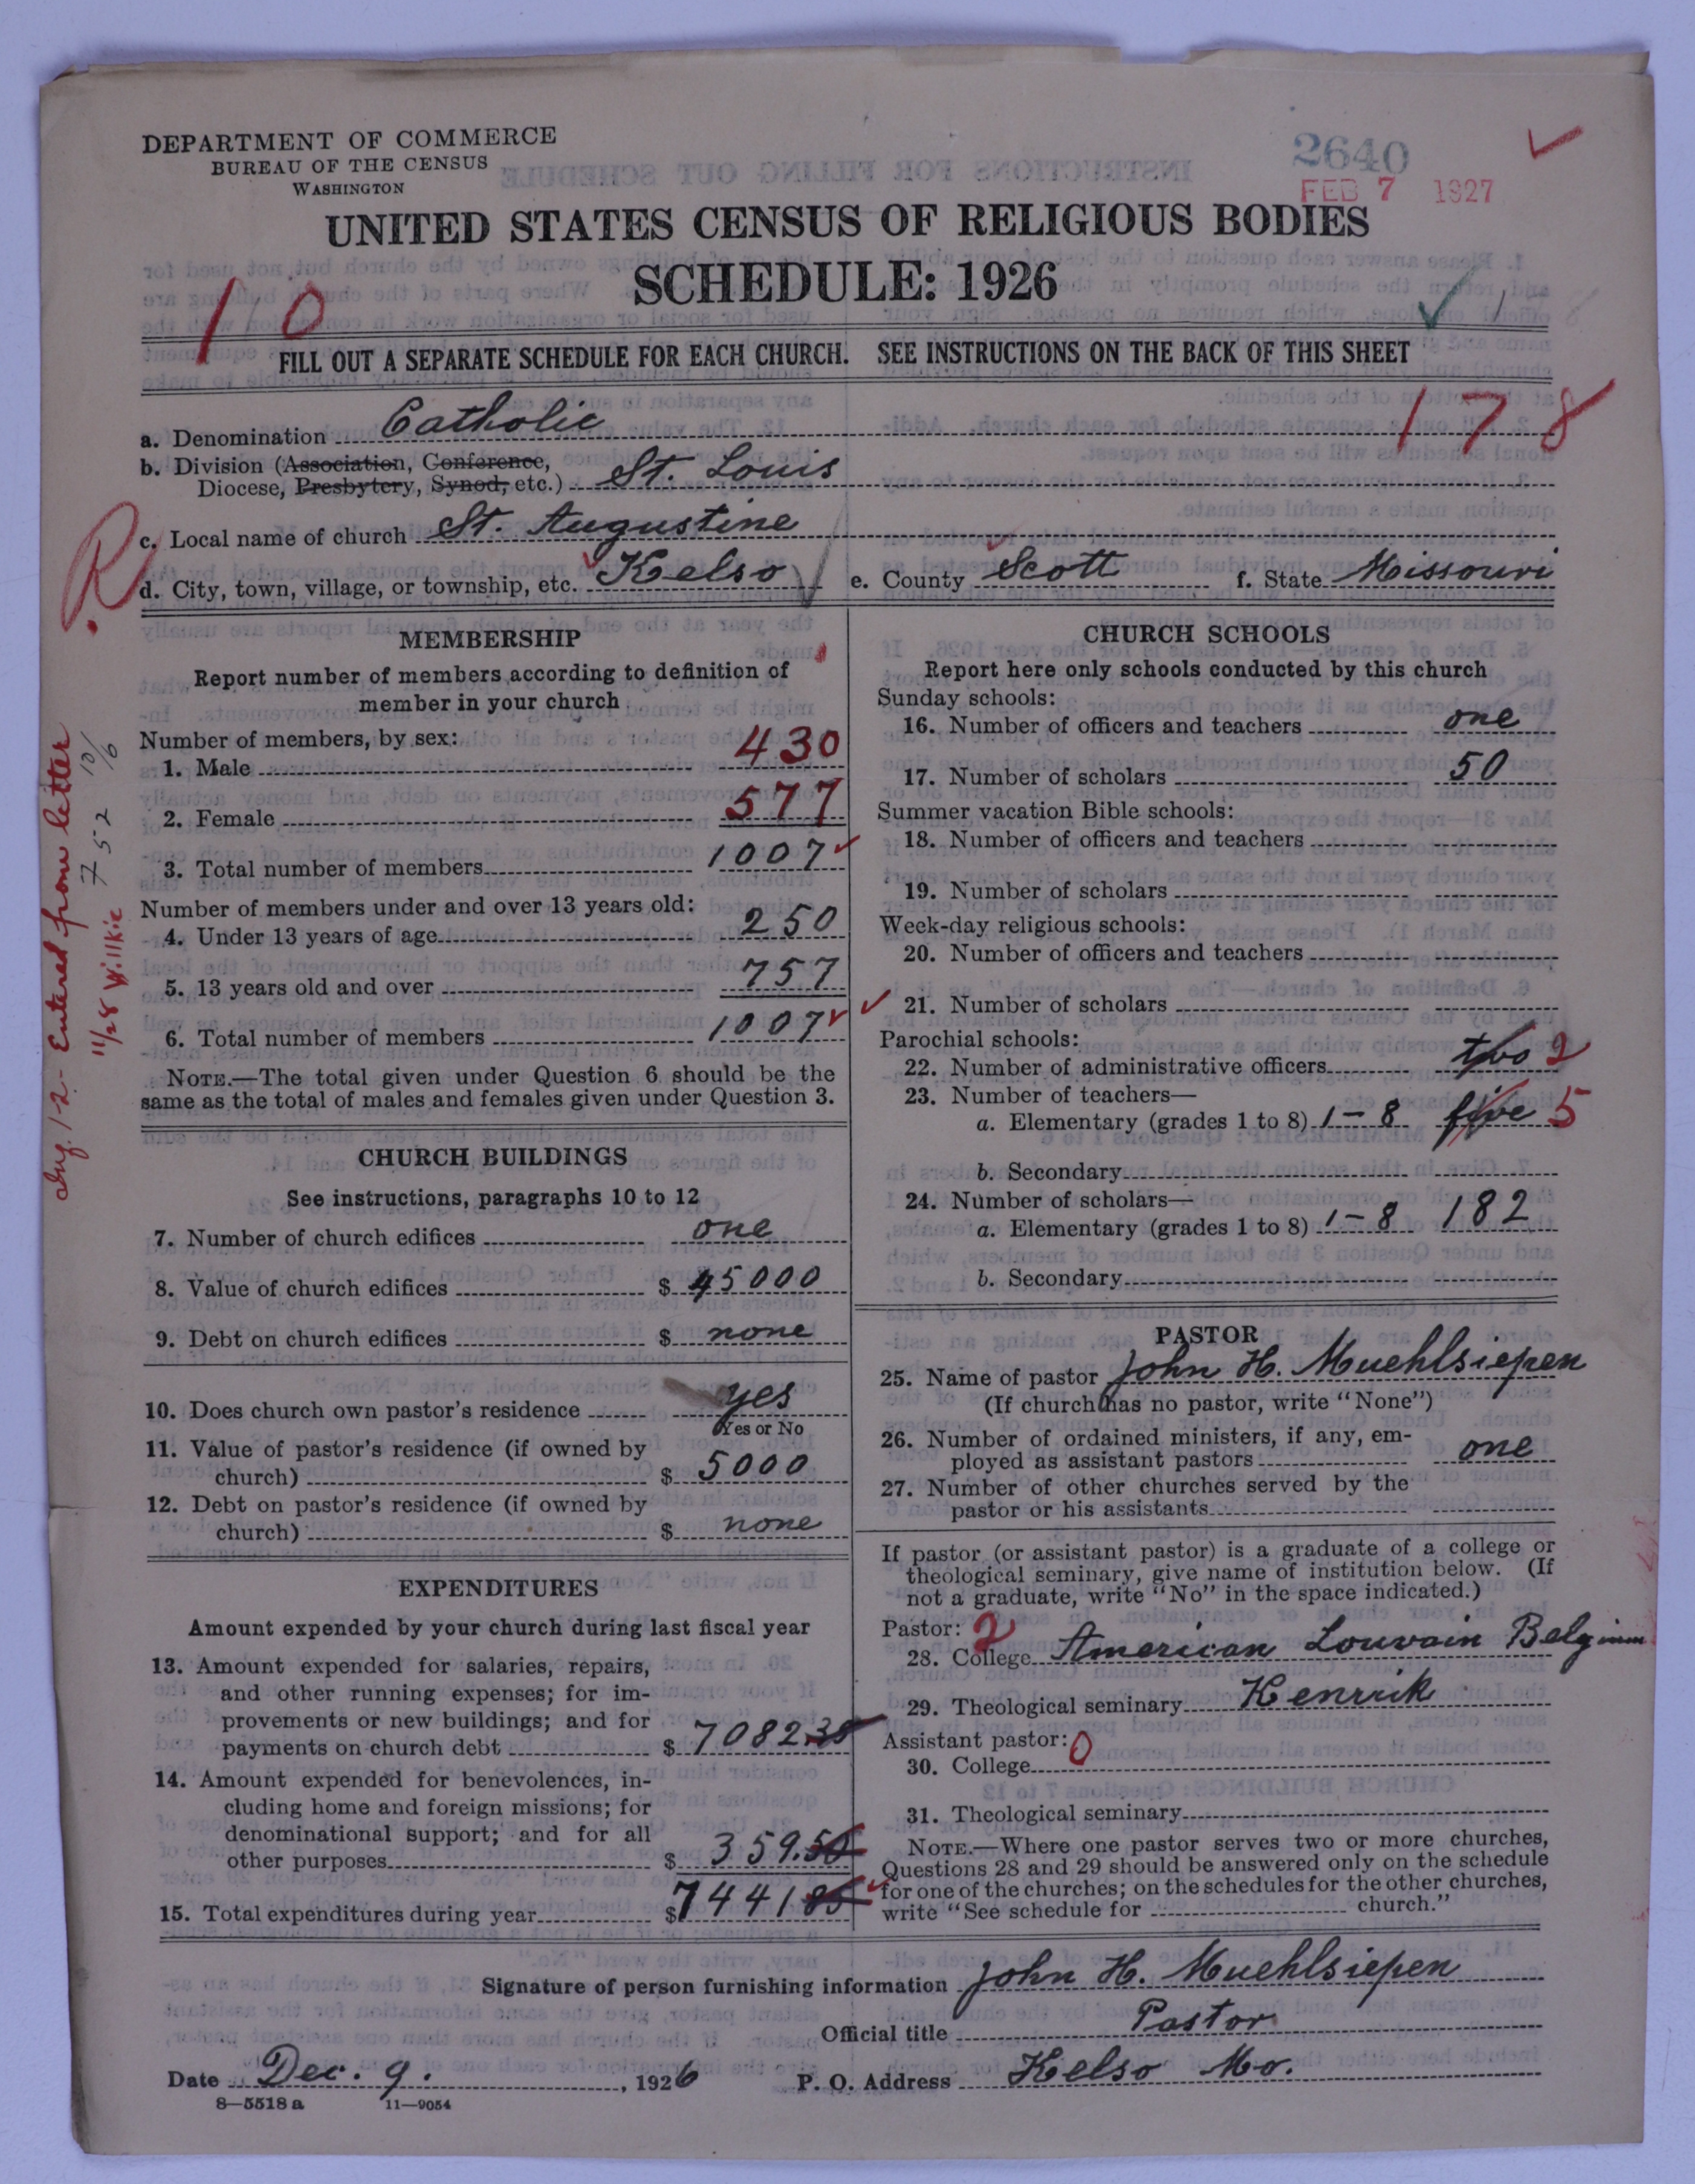 DEPARTMENT OF COMMERCE
BUREAU OF THE CENSUS
WASHINGTON
2640
FEB 7 1927
UNITED STATES CENSUS OF RELIGIOUS BODIES
SCHEDULE: 1926
10
FILL OUT A SEPARATE SCHEDULE FOR EACH CHURCH. SEE INSTRUCTIONS ON THE BACK OF THIS SHEET
178
a. Denomination Catholic
b. Division (Association, Conference,
Diocese, Presbytery, Synod, etc.) St. Louis
c. Local name of church St. Augustine
R
d. City, town, village, or township, etc. Kelso e. County Scott f. State Missouri
MEMBERSHIP
Report number of members according to definition of
member in your church
Number of members, by sex:
1. Male 430
2. Female 577
3. Total number of members 1007
Number of members under and over 13 years old:
4. Under 13 years of age 250
5. 13 years old and over 757
6. Total number of members 1007
NOTE.—The total given under Question 6 should be the
same as the total of males and females given under Question 3.
Entered from letter
11/28 Willkie
752
10/6
CHURCH BUILDINGS
See instructions, paragraphs 10 to 12
7. Number of church edifices one
8. Value of church edifices $ 45000
9. Debt on church edifices $ none
10. Does church own pastor's residence yes
Yes or No
11. Value of pastor's residence (if owned by
church) $ 5000
12. Debt on pastor's residence (if owned by
church) $ none
EXPENDITURES
Amount expended by your church during last fiscal year
13. Amount expended for salaries, repairs,
and other running expenses; for im-
provements or new buildings; and for
payments on church debt $ 7082.35
14. Amount expended for benevolences, in-
cluding home and foreign missions; for
denominational support; and for all
other purposes $ 359.50
15. Total expenditures during year $ 7441 85
CHURCH SCHOOLS
Report here only schools conducted by this church
Sunday schools:
16. Number of officers and teachers one
17. Number of scholars 50
Summer vacation Bible schools:
18. Number of officers and teachers
19. Number of scholars
Week-day religious schools:
20. Number of officers and teachers
21. Number of scholars
Parochial schools:
22. Number of administrative officers two 2
23. Number of teachers—
a. Elementary (grades 1 to 8) 1-8 five 5
b. Secondary
24. Number of scholars—
a. Elementary (grades 1 to 8) 1-8 182
b. Secondary
PASTOR
25. Name of pastor John H. Muehlsiepen
(If church has no pastor, write "None")
26. Number of ordained ministers, if any, em-
ployed as assistant pastors one
27. Number of other churches served by the
pastor or his assistants
If pastor (or assistant pastor) is a graduate of a college or
theological seminary, give name of institution below. (If
not a graduate, write "No" in the space indicated.)
Pastor: 2
28. College American Louvain Belgium
29. Theological seminary Kenrick
Assistant pastor: 0
30. College
31. Theological seminary
NOTE.—Where one pastor serves two or more churches,
Questions 28 and 29 should be answered only on the schedule
for one of the churches; on the schedules for the other churches,
write "See schedule for church."
Signature of person furnishing information John H. Muehlsiepen
Official title Pastor
Date Dec. 9. , 1926 P. O. Address Kelso Mo.
8—5518 a 11—9054